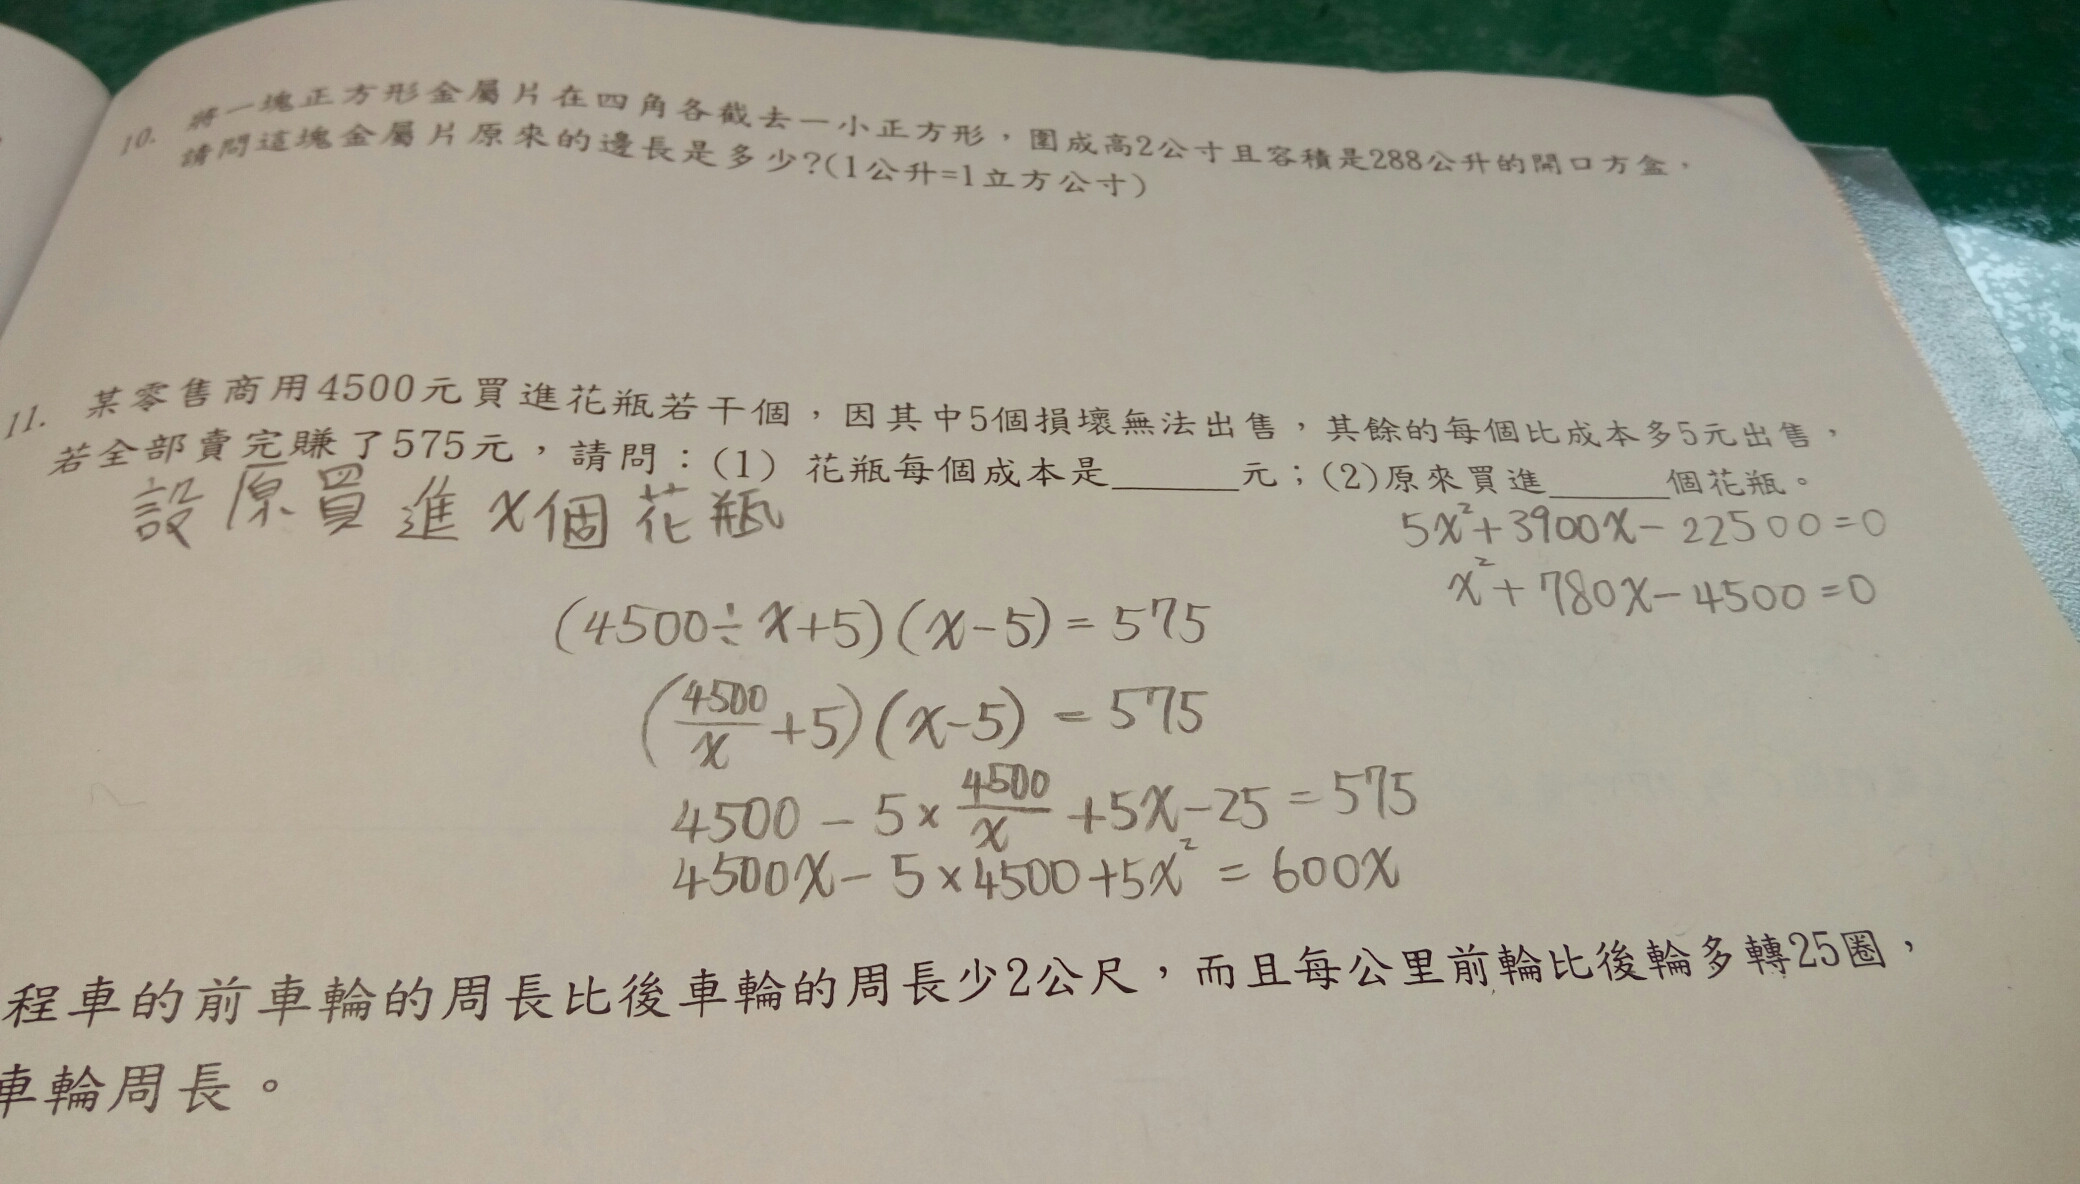 10. 將一塊正方形金屬片在四角各截去一小正方形，圍成高2公寸且容積是288公升的開口方盒，
請問這塊金屬片原來的邊長是多少?(1公升=1立方公寸)
11. 某零售商用4500元買進花瓶若干個，因其中5個損壞無法出售，其餘的每個比成本多5元出售，
若全部賣完賺了575元，請問：(1) 花瓶每個成本是______元；(2)原來買進______個花瓶。
設原買進x個花瓶
5x²+3900x-22500=0
x²+780x-4500=0
(4500÷x+5)(x-5)=575
(4500/x+5)(x-5)=575
4500-5×4500/x+5x-25=575
4500x-5×4500+5x²=600x
程車的前車輪的周長比後車輪的周長少2公尺，而且每公里前輪比後輪多轉25圈，
車輪周長。